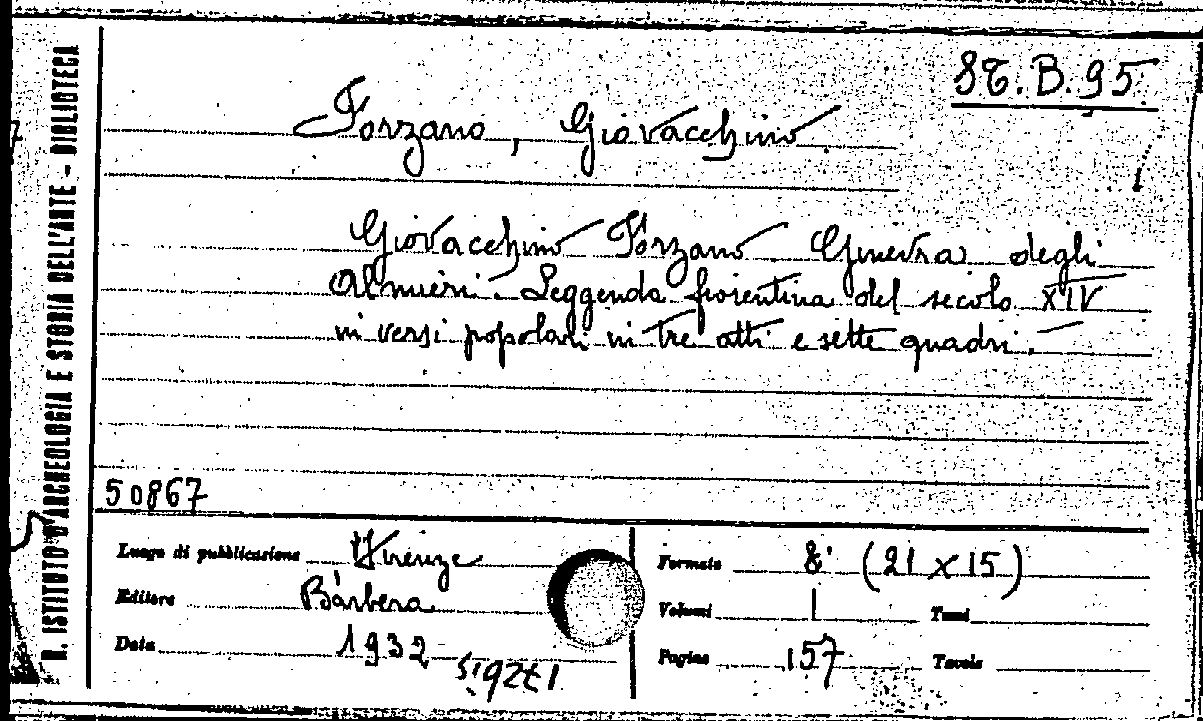 R. ISTITUTO D'ARCHEOLOGIA E STORIA DELL'ARTE - BIBLIOTECA
St. B. 95
Forzano, Giovacchino
Giovacchino Forzano. Ginevra degli
Almieri. Leggenda fiorentina del secolo XIV
in versi popolari in tre atti e sette quadri.
50867
Luogo di pubblicazione Firenze
Editore Bàrbera
Data 1932
Formato 8° (21 x 15)
Volumi 1 Tomi
Pagine 157 Tavole